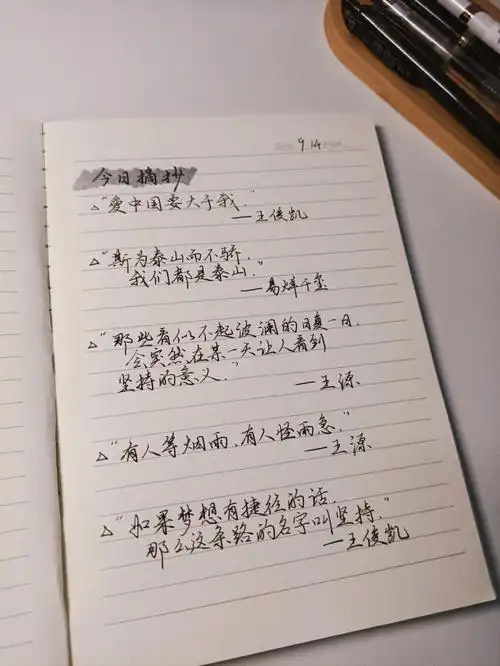 9.14
今日摘抄
△“爱中国要大于我。”
—王俊凯
△“斯为泰山而不骄,
我们都是泰山。”
—易烊千玺
△“那些看似不起波澜的日复一日,
会突然在某一天让人看到
坚持的意义。”
—王源
△“有人等烟雨,有人怪雨急。”
—王源
△“如果梦想有捷径的话,
那么这条路的名字叫坚持。”
—王俊凯